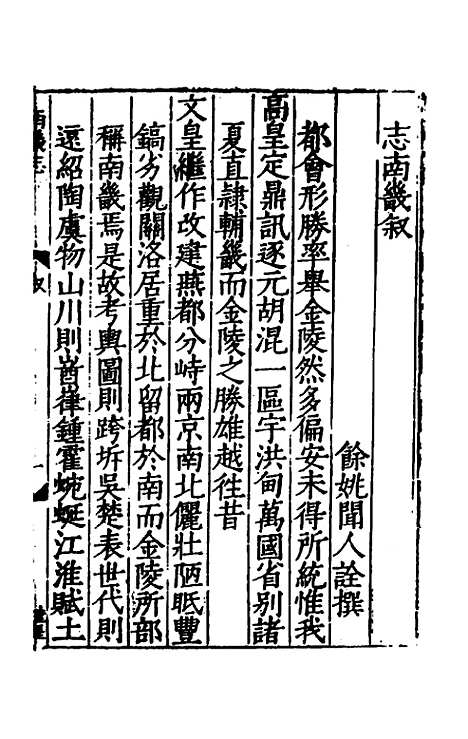 志南畿叙
餘姚聞人詮撰
都會形勝率舉金陵然多偏安未得所統惟我
高皇定鼎訊逐元胡混一區宇洪甸萬國省别諸
夏直隷輔畿而金陵之勝雄越徃昔
文皇繼作改建燕都分峙兩京南北儷壯陋眂豐
鎬劣觀關洛居重於北留都於南而金陵所部
稱南畿焉是故考輿圖則跨圻吳楚表世代則
逺紹陶虞物山川則嶅嵂鍾霍蜿蜒江淮賦土
南畿志
叙
一